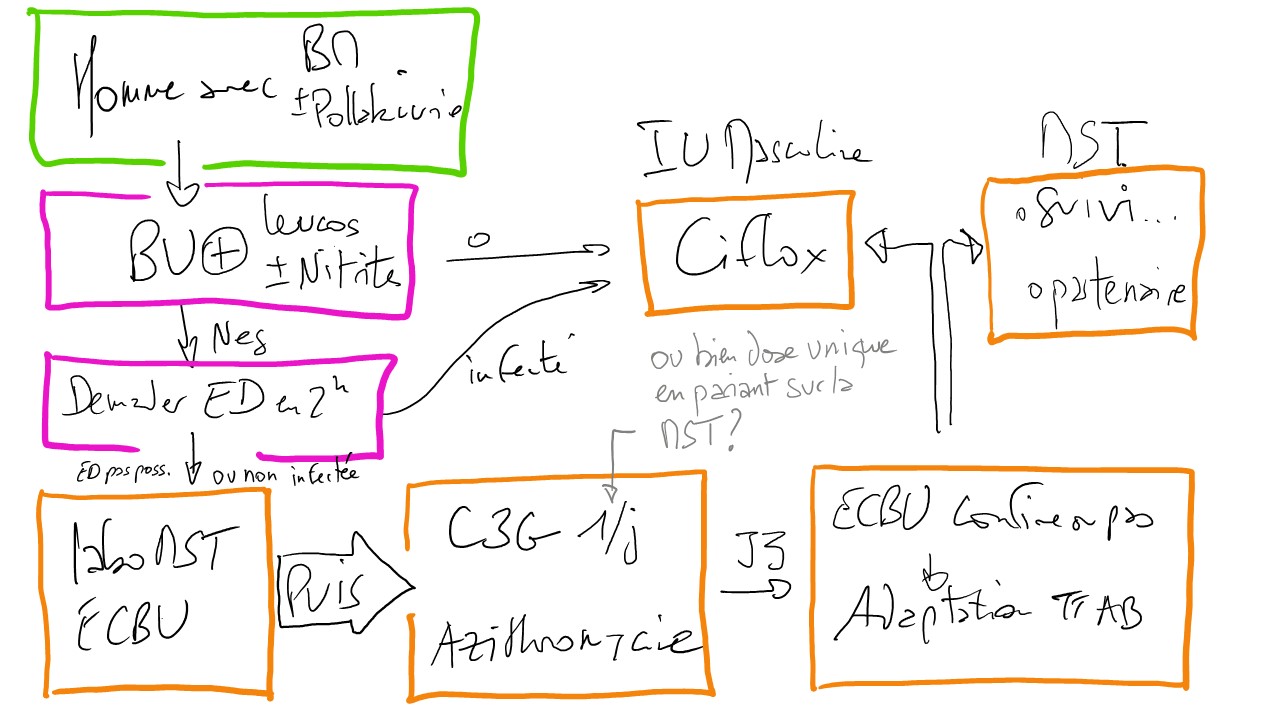 Homme avec BM
± Pollakiurie
BU ⊕ leucos
± Nitrite
Neg
Demander ED en 2h
infecté
ED pas poss. ou non infectée
labo MST
ECBU
Puis
C3G 1/j
Azithromycine
J3
ECBU confirme ou pas
Adaptation TT AB
IU Masculine
Ciflox
ou bien dose unique
en pariant sur la
MST?
MST
o Suivi...
o partenaire